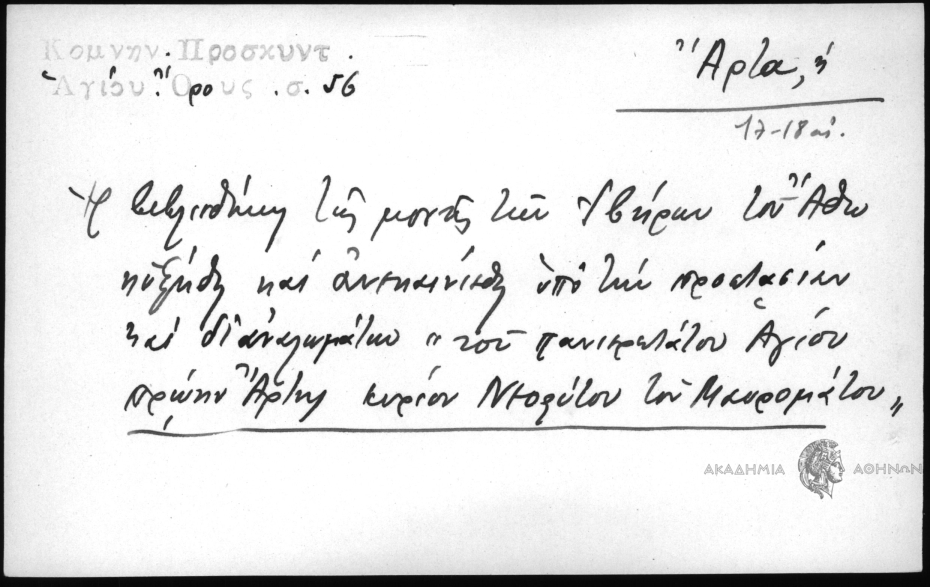 Κομνην. Προσκυντ.
Ἁγίου Ὄρους. σ. 56
Ἄρτα, ἡ
17-18 αἰ.
Ἡ βιβλιοθήκη τῆς μονῆς τῶν Ἰβήρων τοῦ Ἄθω
ηὐξήθη καὶ ἀνεκαινίσθη ὑπὸ τὴν προστασίαν
καὶ δι' ἀναλωμάτων „τοῦ πανιερωτάτου Ἁγίου
πρώην Ἄρτης κυρίου Νεοφύτου τοῦ Μαυρομάτου„
ΑΚΑΔΗΜΙΑ ΑΘΗΝΩΝ